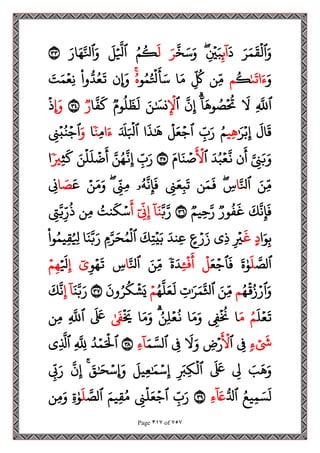 وَٱلْقَمَرَ دَآئِبَيْنِ ۖ وَسَخَّرَ لَكُمُ ٱلَّيْلَ وَٱلنَّهَارَ ٣٣
وَءَاتَىٰكُم مِّن كُلِّ مَا سَأَلْتُمُوهُ ۚ وَإِن تَعُدُّوا۟ نِعْمَتَ
ٱللَّهِ لَا تُحْصُوهَآ ۗ إِنَّ ٱلْإِنسَٰنَ لَظَلُومٌ كَفَّارٌ ٣٤ وَإِذْ
قَالَ إِبْرَٰهِيمُ رَبِّ ٱجْعَلْ هَٰذَا ٱلْبَلَدَ ءَامِنًا وَٱجْنُبْنِى
وَبَنِىَّ أَن نَّعْبُدَ ٱلْأَصْنَامَ ٣٥ رَبِّ إِنَّهُنَّ أَضْلَلْنَ كَثِيرًا
مِّنَ ٱلنَّاسِ ۖ فَمَن تَبِعَنِى فَإِنَّهُۥ مِنِّى ۖ وَمَنْ عَصَانِى
فَإِنَّكَ غَفُورٌ رَّحِيمٌ ٣٦ رَّبَّنَآ إِنِّىٓ أَسْكَنتُ مِن ذُرِّيَّتِى
بِوَادٍ غَيْرِ ذِى زَرْعٍ عِندَ بَيْتِكَ ٱلْمُحَرَّمِ رَبَّنَا لِيُقِيمُوا۟
ٱلصَّلَوٰةَ فَٱجْعَلْ أَفْـِٔدَةً مِّنَ ٱلنَّاسِ تَهْوِىٓ إِلَيْهِمْ
وَٱرْزُقْهُم مِّنَ ٱلثَّمَرَٰتِ لَعَلَّهُمْ يَشْكُرُونَ ٣٧ رَبَّنَآ إِنَّكَ
تَعْلَمُ مَا نُخْفِى وَمَا نُعْلِنُ ۗ وَمَا يَخْفَىٰ عَلَى ٱللَّهِ مِن
شَىْءٍ فِى ٱلْأَرْضِ وَلَا فِى ٱلسَّمَآءِ ٣٨ ٱلْحَمْدُ لِلَّهِ ٱلَّذِى
وَهَبَ لِى عَلَى ٱلْكِبَرِ إِسْمَٰعِيلَ وَإِسْحَٰقَ ۚ إِنَّ رَبِّى
لَسَمِيعُ ٱلدُّعَآءِ ٣٩ رَبِّ ٱجْعَلْنِى مُقِيمَ ٱلصَّلَوٰةِ وَمِن
Page ٣١٧ of ٧٥٧